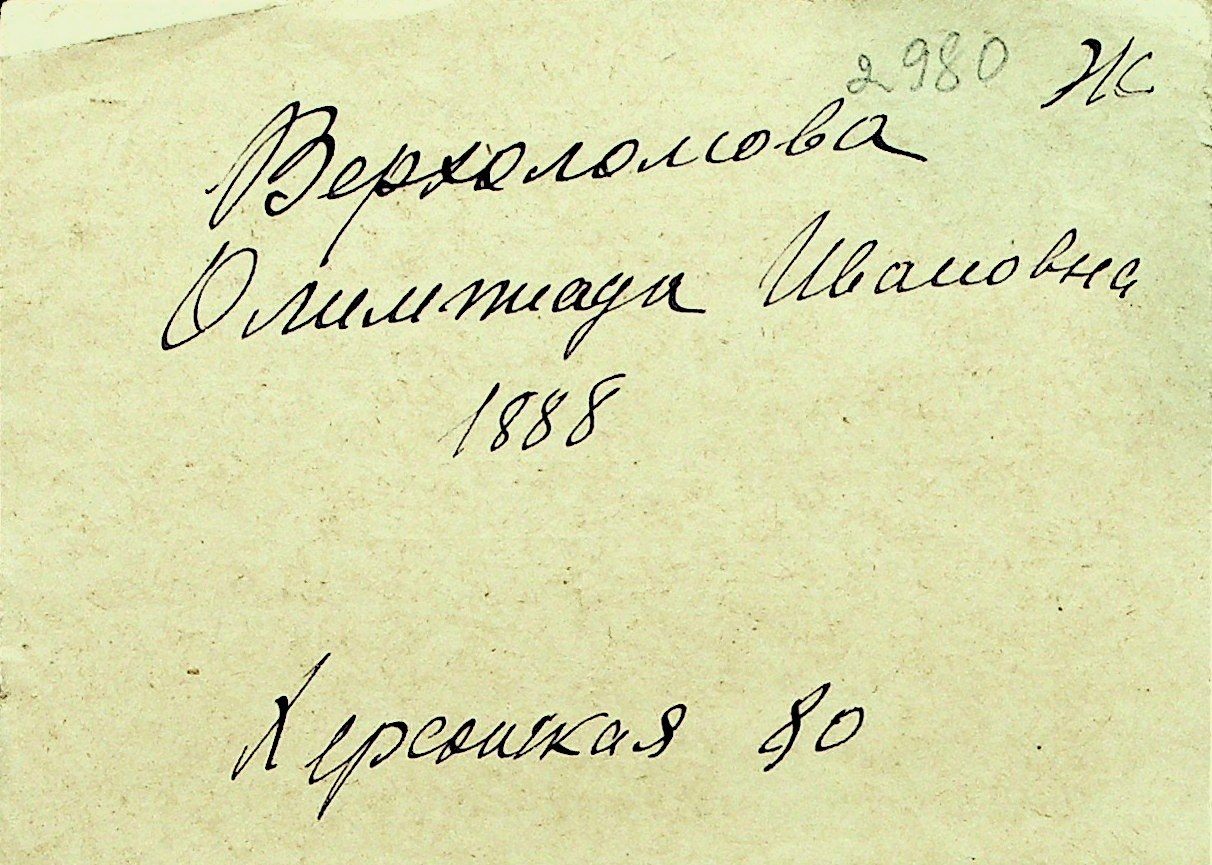 2980 Ж
Верхоломова
Олимпиада Ивановна
1888
Херсонская 80